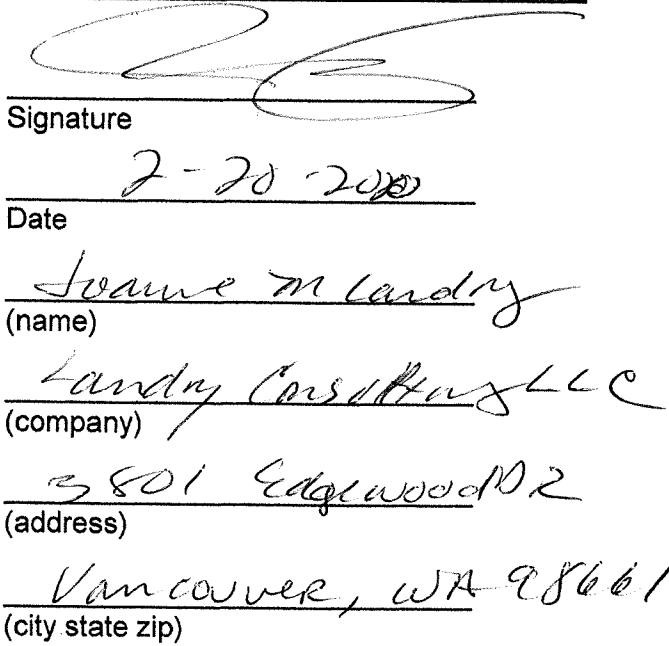 Signature
2-20-2020
Date
Joanne M Landry
(name)
Landry Consulting LLC
(company)
3801 Edgewood DR
(address)
Vancouver, WA 98661
(city state zip)